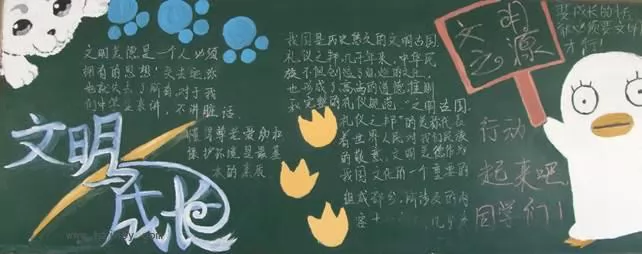 文明美德是一个人必须
拥有的思想，失去它，你
也就失去了所有，对于我
们中学生来讲，不讲脏话，
懂得尊老爱幼和
保护环境是最基
本的素质
文明与成长
我国是历史悠久的文明古国，
礼仪之邦，几千年来，中华民
族不但创造了灿烂的文化，
也形成了高尚的道德准则
和完整的礼仪规范，“文明古国，
礼仪之邦”的美称代表
着世界人民对我们民族
的敬意，文明美德作为
我国文化的一个重要的
组成部分，所涉及的内
容十
几乎
文明
之源
要成长的
你必须要文明
才行！
行动
起来吧，
同学们！